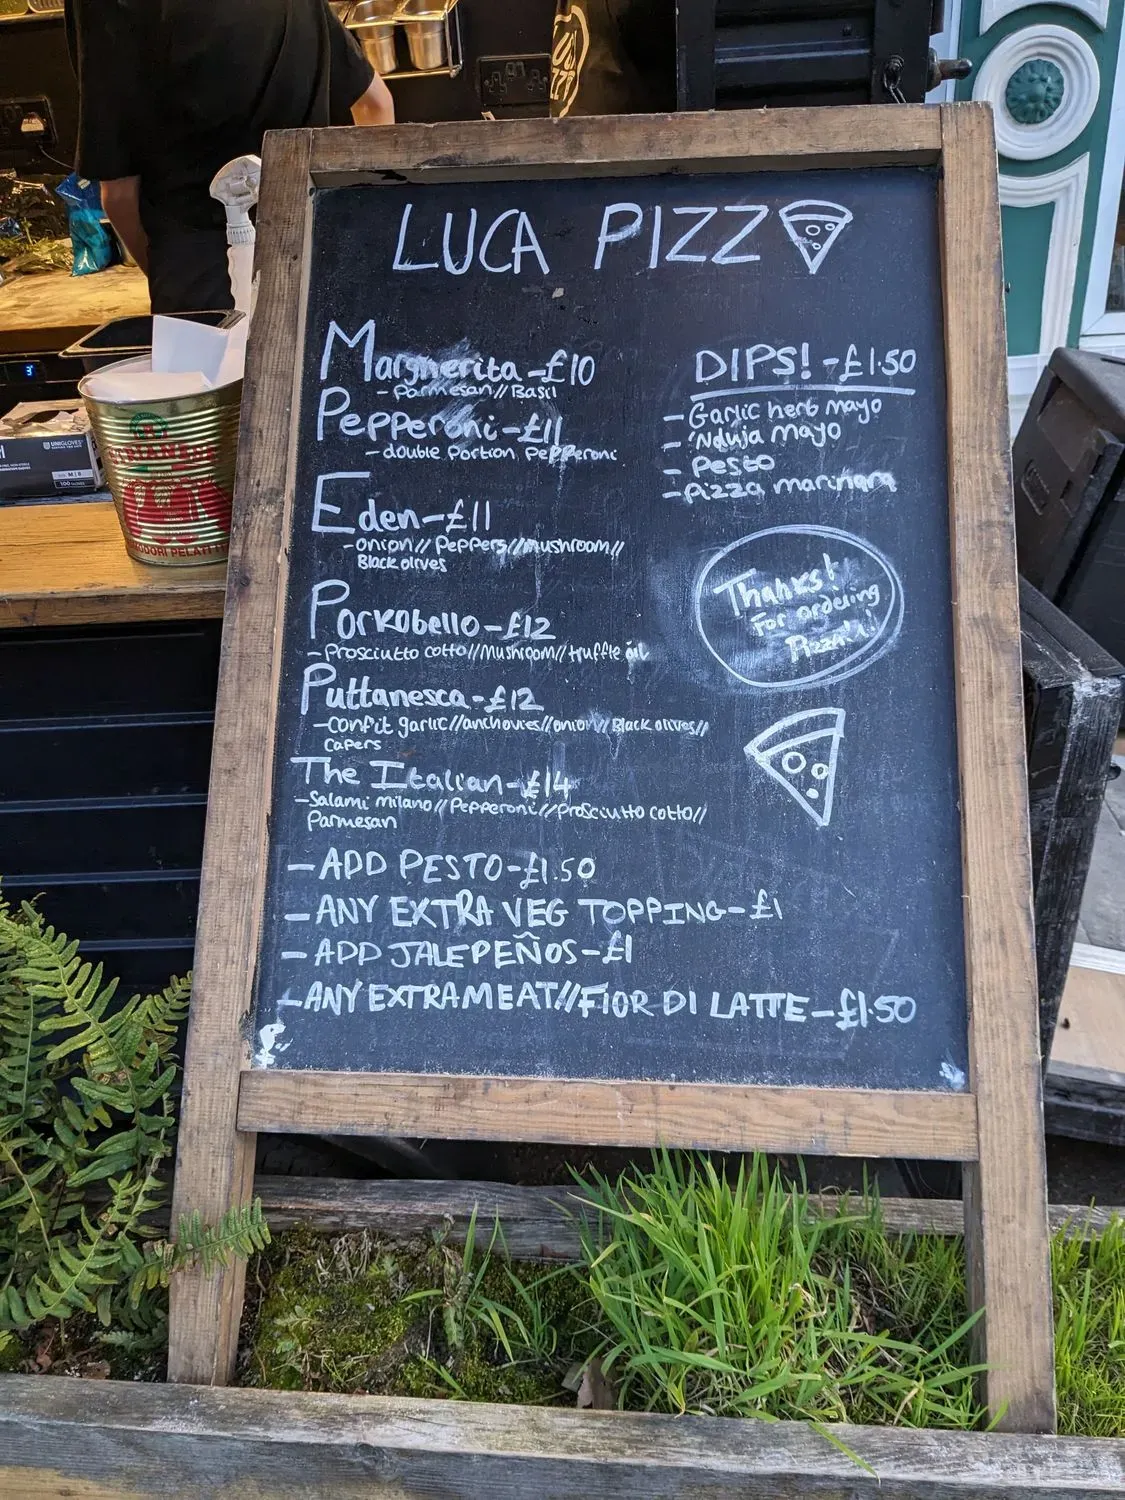 LUCA PIZZ
Margherita - £10
- Parmesan // Basil
Pepperoni - £11
- double Portion Pepperoni
Eden - £11
- onion // Peppers // mushroom //
Black olives
Porkobello - £12
- Prosciutto cotto // Mushroom // truffle oil
Puttanesca - £12
- confit garlic // anchovies // onion // Black olives //
Capers
The Italian - £14
- Salami milano // Pepperoni // Prosciutto cotto //
Parmesan
- ADD PESTO - £1.50
- ANY EXTRA VEG TOPPING - £1
- ADD JALEPEÑOS - £1
- ANY EXTRA MEAT // FIOR DI LATTE - £1.50
DIPS! - £1.50
- Garlic herb mayo
- 'Nduja mayo
- Pesto
- Pizza marinara
Thanks!
For ordering
Pizza!
UNIGLOVES
POMODORI PELATI